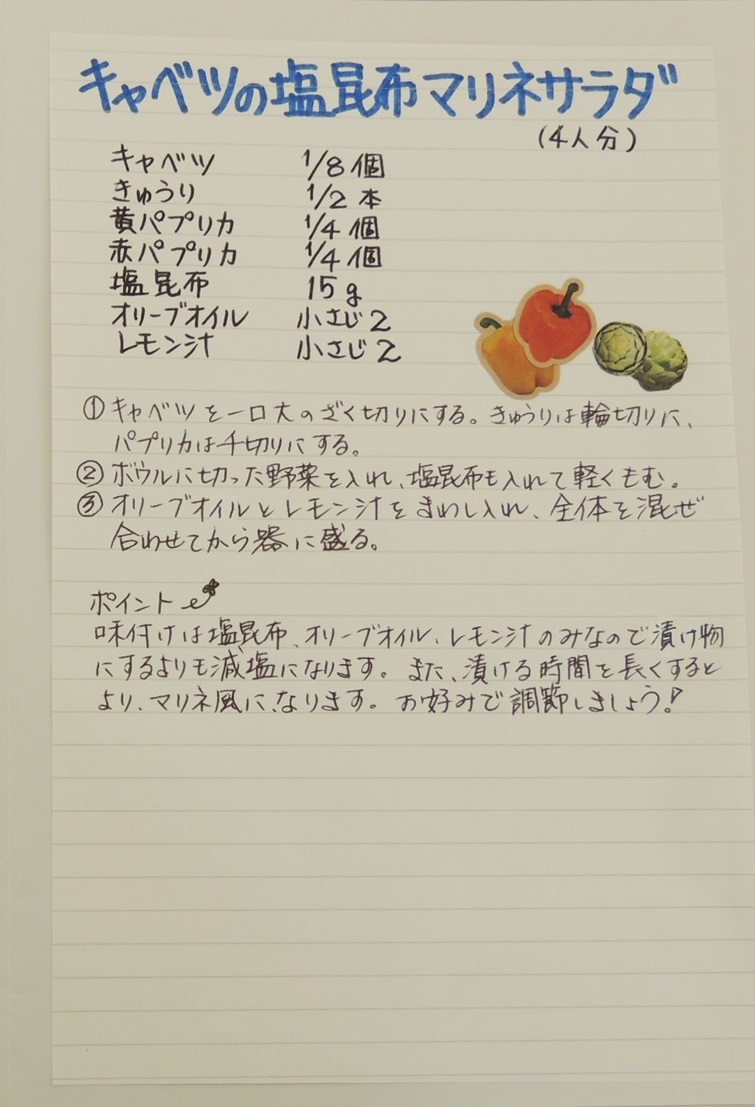 キャベツの塩昆布マリネサラダ
(4人分)
キャベツ 1/8個
きゅうり 1/2本
黄パプリカ 1/4個
赤パプリカ 1/4個
塩昆布 15g
オリーブオイル 小さじ2
レモン汁 小さじ2
①キャベツを一口大のざく切りにする。きゅうりは輪切りに、
パプリカは千切りにする。
②ボウルに切った野菜を入れ、塩昆布も入れて軽くもむ。
③オリーブオイルとレモン汁をまわし入れ、全体を混ぜ
合わせてから器に盛る。
ポイント
味付けは塩昆布、オリーブオイル、レモン汁のみなので漬け物
にするよりも減塩になります。また、漬ける時間を長くすると
より、マリネ風に、なります。お好みで調節しましょう!